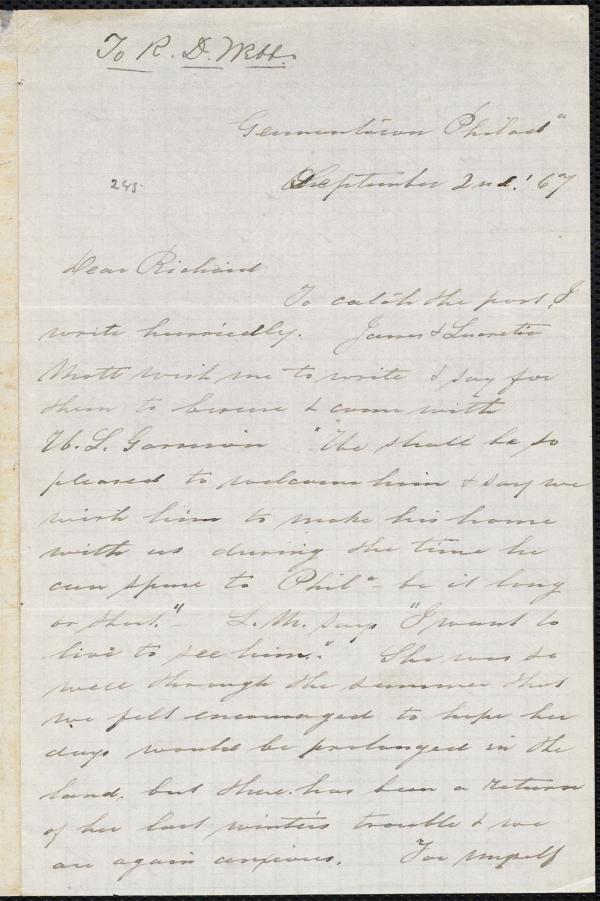 To R. D. Webb.
Germantown Philad^a
245
September 2nd. '67
Dear Richard
To catch the post, I
write hurriedly. James & Lucretia
Mott wish me to write & say for
them to be sure & come with
W. L. Garrison "We shall be so
pleased to welcome him & say we
wish him to make his home
with us during the time he
can spare to Phil^a - be it long
or short." - L. M. says "I want to
live to see him." She was so
well through the summer that
we felt encouraged to hope her
days would be prolonged in the
land, but there has been a return
of her last winter's trouble & we
are again anxious. For myself